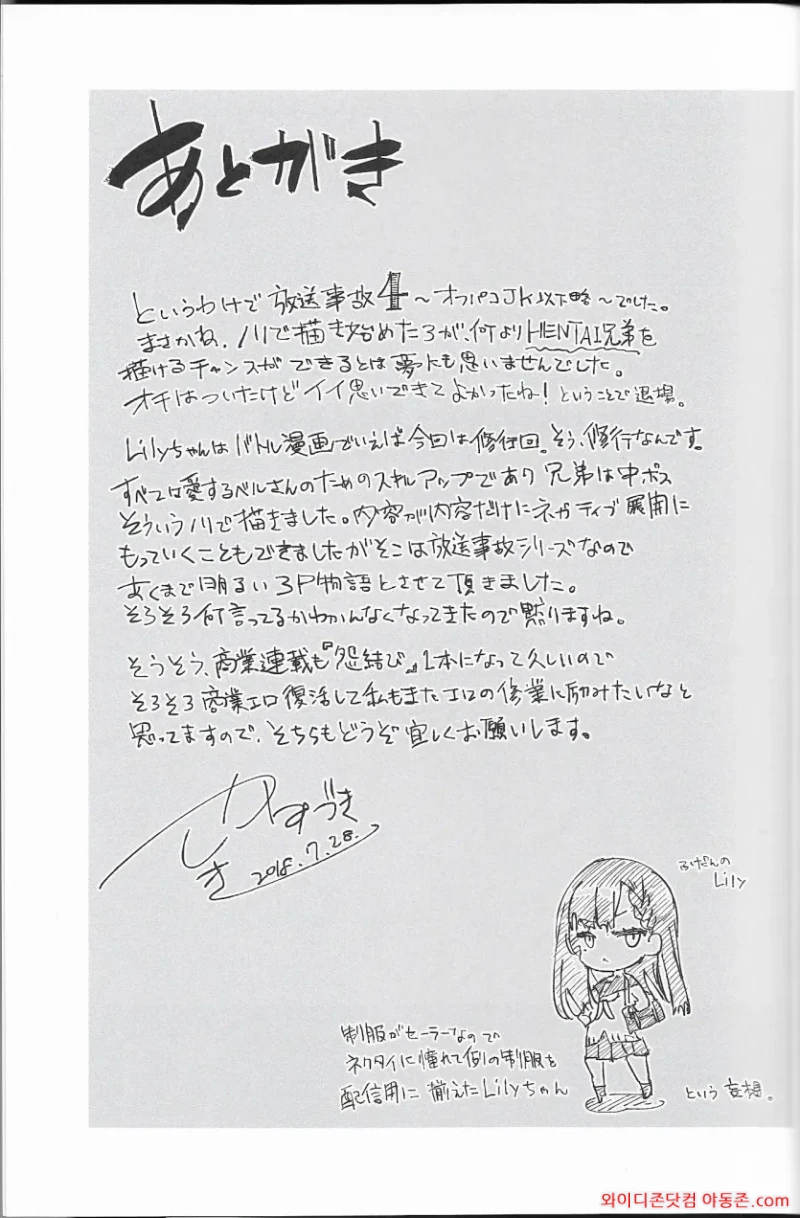 あとがき
というわけで放送事故4〜オフパコJK以下略〜でした。
まさかね、ノリで描き始めた3が、何よりHENTAI兄弟を
描けるチャンスができるとは夢にも思いませんでした。
オチはついたけどイイ思いできてよかったね！ということで退場。
Lilyちゃんはバトル漫画でいえば今回は修行回。そう、修行なんです。
すべては愛するベルさんのためのスキルアップであり兄弟は中ボス
そういうノリで描きました。内容が内容だけにネガティブ展開に
もっていくこともできましたがそこは放送事故シリーズなので
あくまで明るい3P物語とさせて頂きました。
そろそろ何言ってるかわかんなくなってきたので黙りますね。
そうそう、商業連載も『怨結び』1本になって久しいので
そろそろ商業エロ復活して私もまたエロの修業に励みたいなと
思ってますので、そちらもどうぞ宜しくお願いします。
かずづき
しき
2018.7.28.
ふだんの
Lily
制服がセーラーなので
ネクタイに憧れて例の制服を
配信用に揃えたLilyちゃん
という妄想。
와이디존닷컴 야동존.com